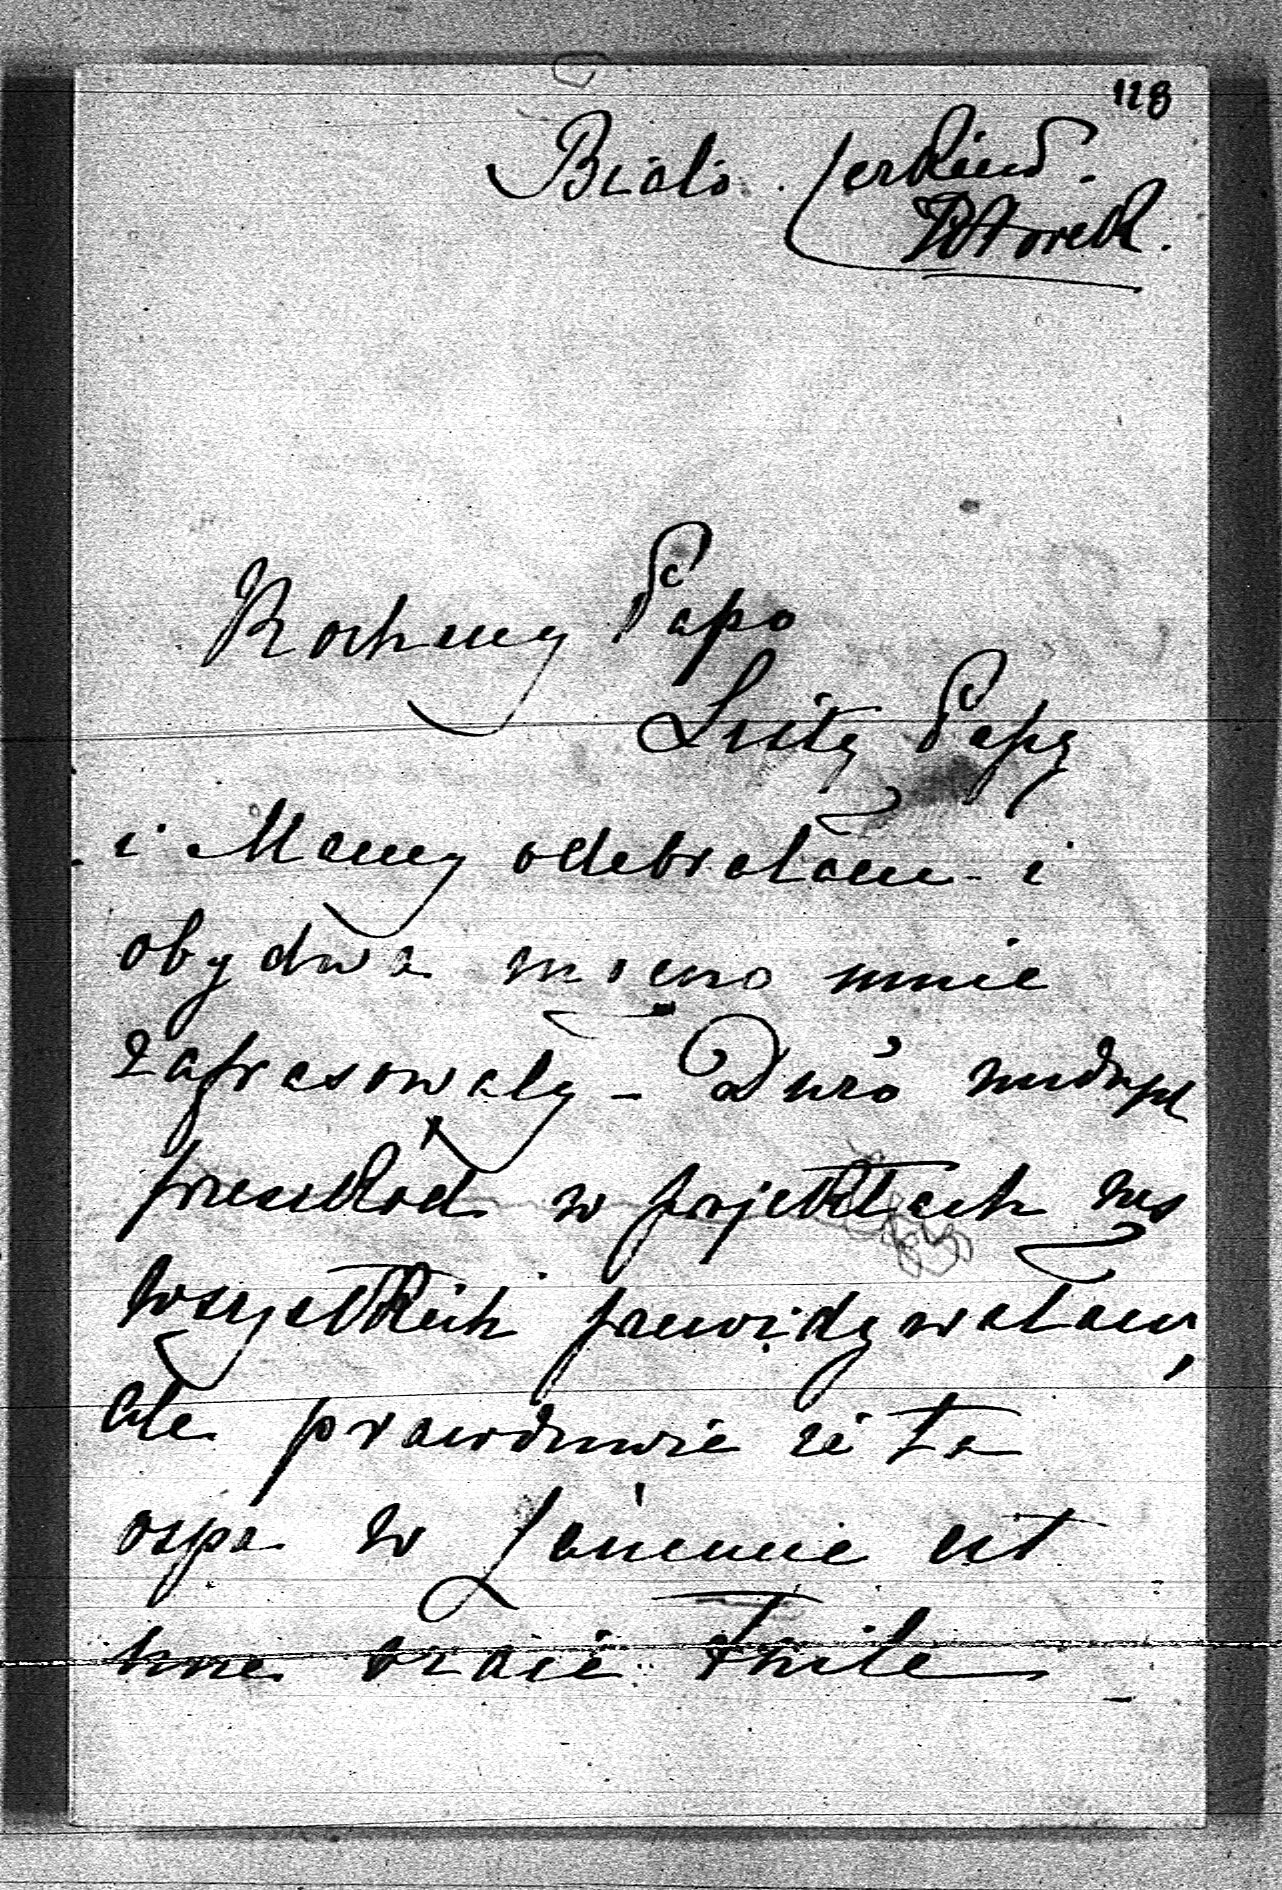 128
Biało Cerkiew.
Wtorek.
Kochany Papo
Listy Papy
i Mamy odebrałam i
obydwa mocno mnie
zafrasowały – Dużo
przeszkód w projektach nas
wszystkich przewidywałam,
ale prawdziwie że ta
ospa w Łańcucie est
une vraie tuile –